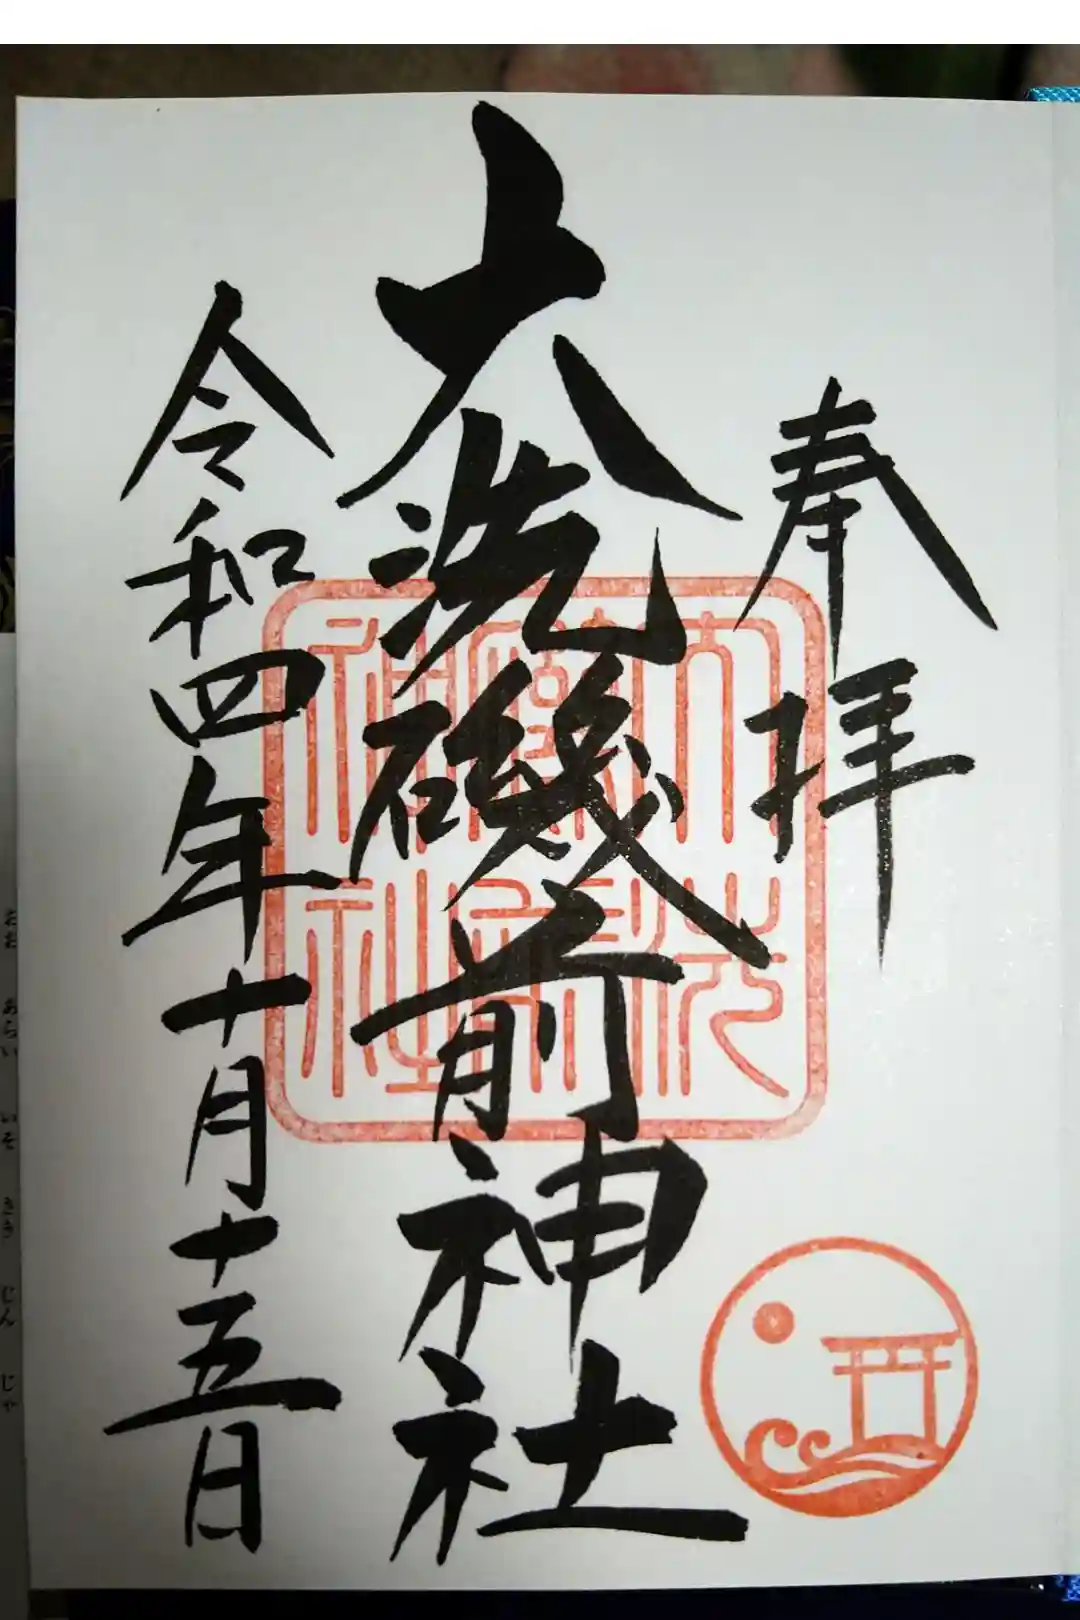 奉拝
大洗磯前神社
大洗
磯前
神社
令和四年十月十五日
おお あらい いそ さき じん じゃ